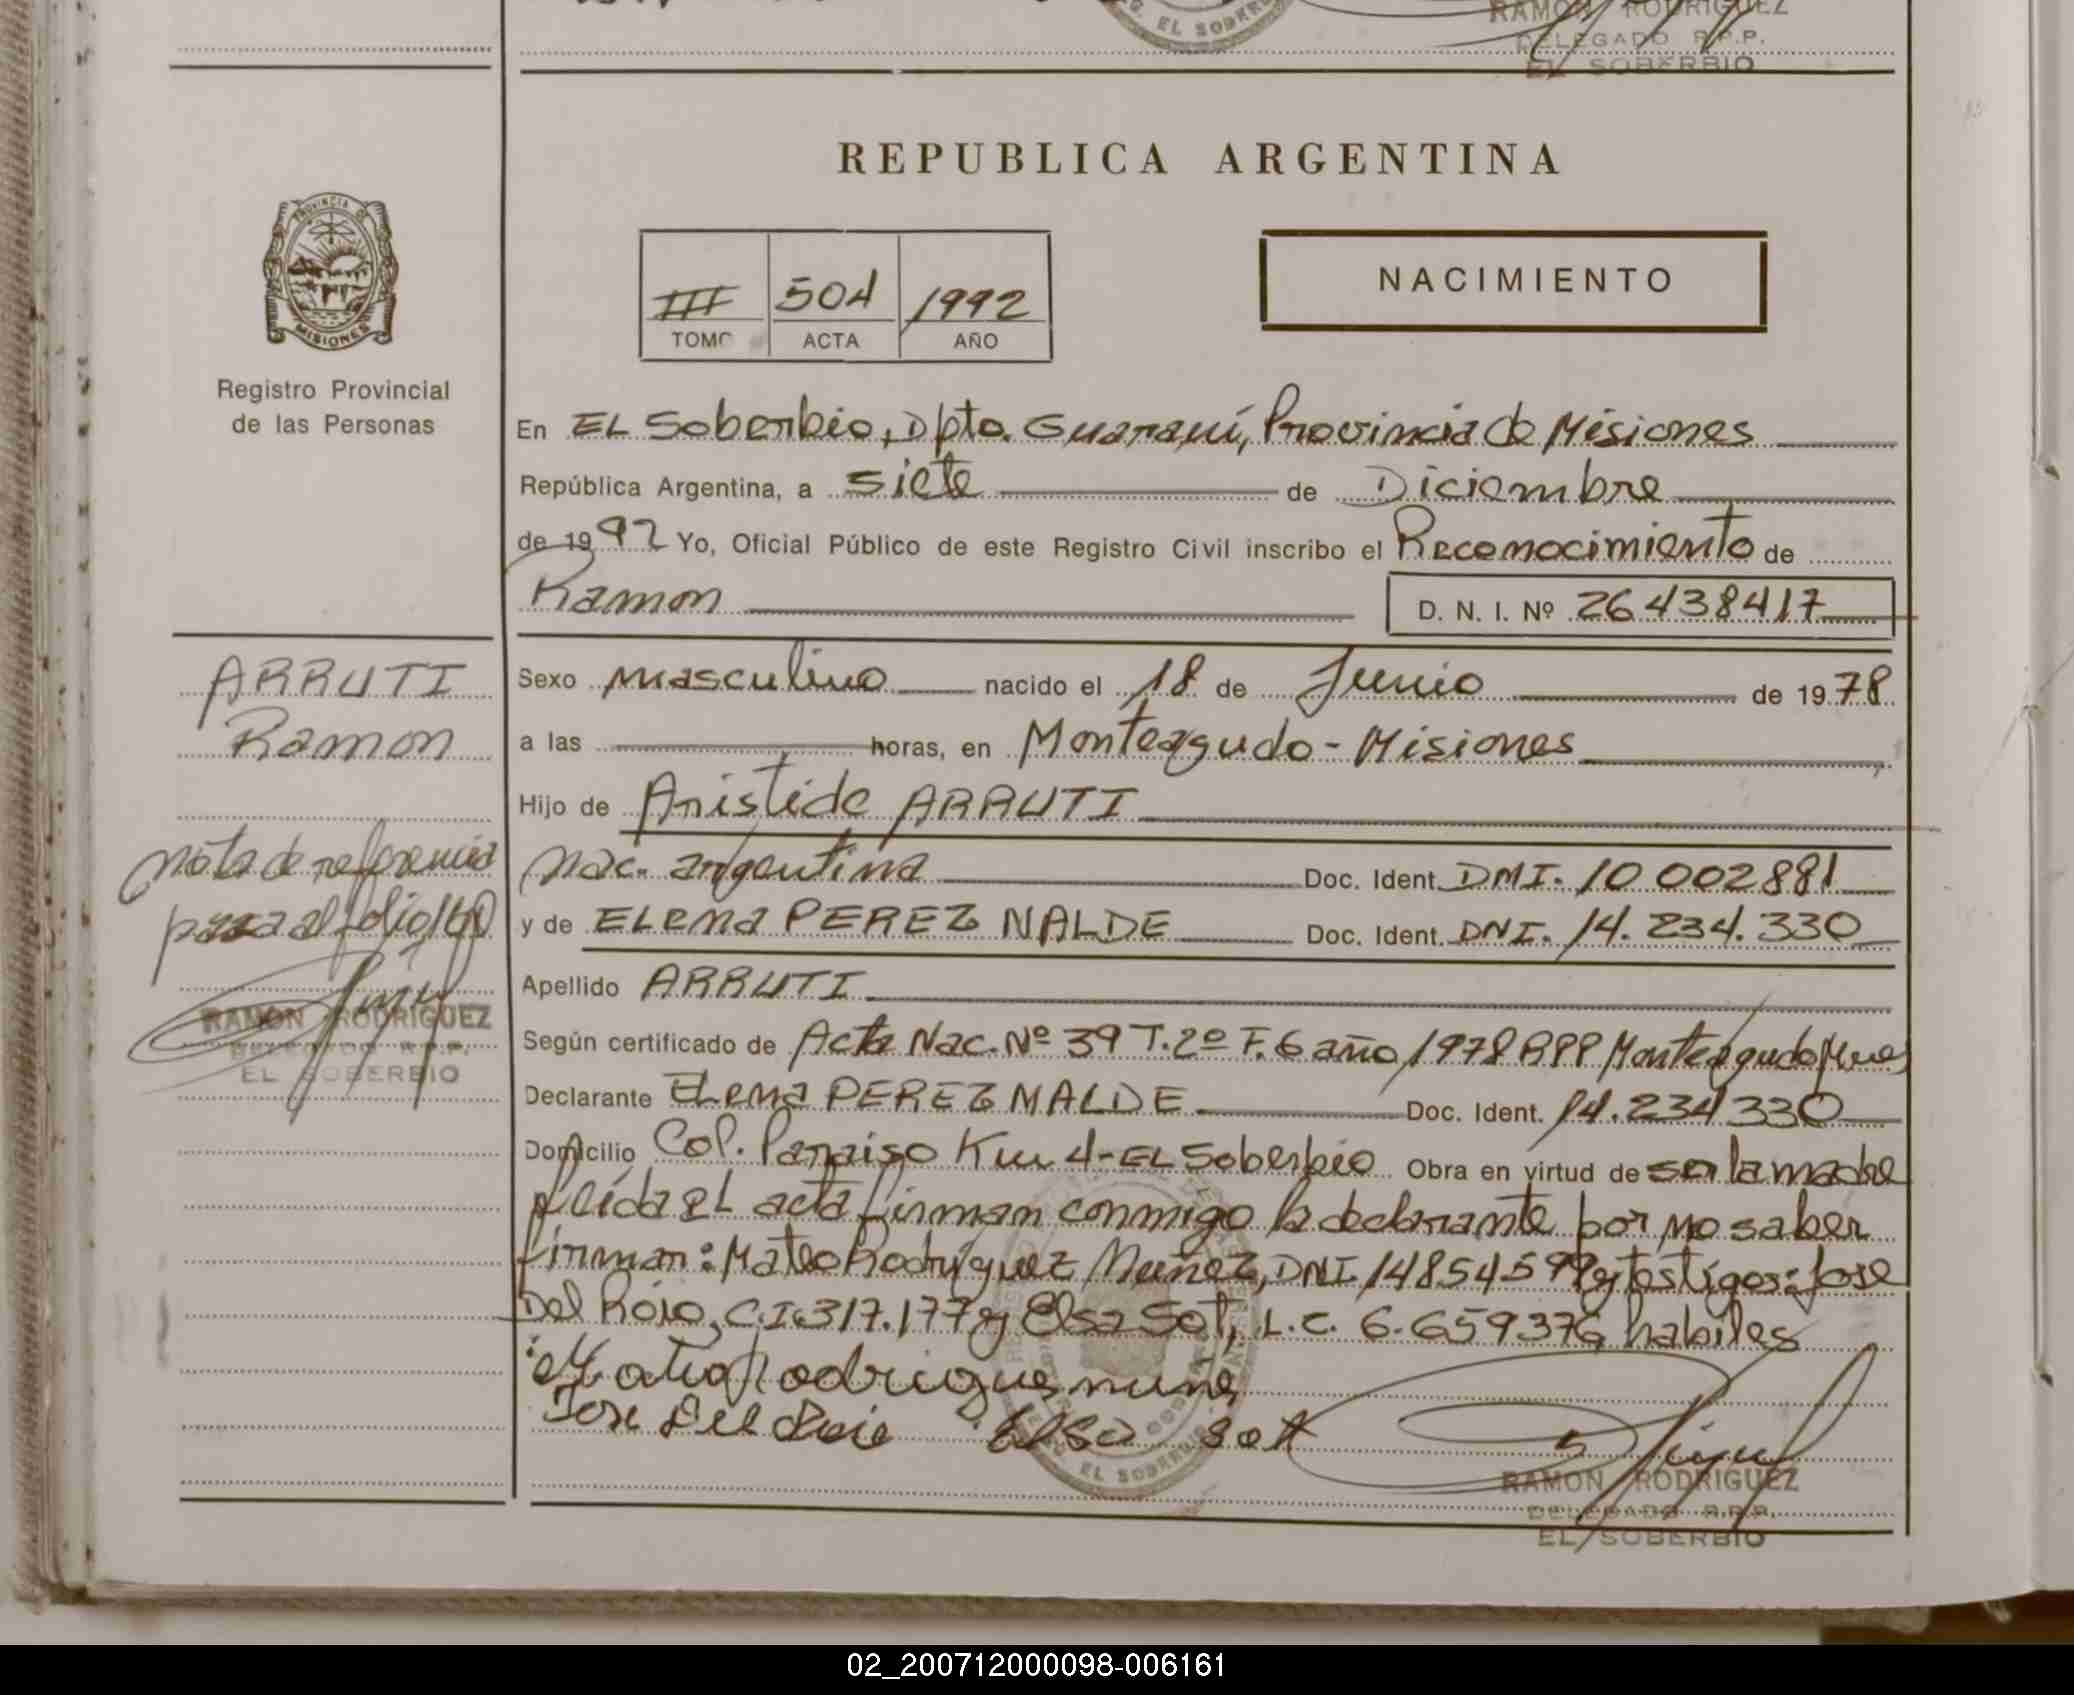 RAMON RODRIGUEZ
DELEGADO R.P.P.
EL SOBERBIO
REPUBLICA ARGENTINA
NACIMIENTO
III 504 1992
TOMO ACTA AÑO
PROVINCIA DE
MISIONES
Registro Provincial
de las Personas
En EL Soberbio, Dpto. Guaraní, Provincia de Misiones
República Argentina, a siete de Diciembre
de 1992 Yo, Oficial Público de este Registro Civil inscribo el Reconocimiento de
Ramon D. N. I. Nº 26438417
ARRUTI
Ramon
Sexo masculino nacido el 18 de Junio de 1978
a las horas, en Monteagudo - Misiones
Hijo de Aristide ARRUTI
nota de referencia
pasa al folio 160
RAMON RODRIGUEZ
DELEGADO R.P.P.
EL SOBERBIO
Nac. argentina Doc. Ident. DMI. 10 002881
y de ELena PEREZ NALDE Doc. Ident. DNI. 14.234.330
Apellido ARRUTI
Según certificado de Acta Nac. Nº 39 T.2º F.6 año 1978 RPP Monteagudo
Declarante ELena PEREZ NALDE Doc. Ident. 14.234330
Domicilio Col. Paraiso Km 4 - EL Soberbio Obra en virtud de ser la madre
Leída el acta firman conmigo la declarante por no saber
firmar: Mateo Rodriguez Muñez, DNI 14854599 y testigos: Jose
Del Roio, C.I. 317.177 y Elsa Sot, L.C. 6.659376, habiles
Jose Del Roio Elsa Sott
EL SOBERBIO
RAMON RODRIGUEZ
DELEGADO R.P.P.
EL SOBERBIO
02_200712000098-006161